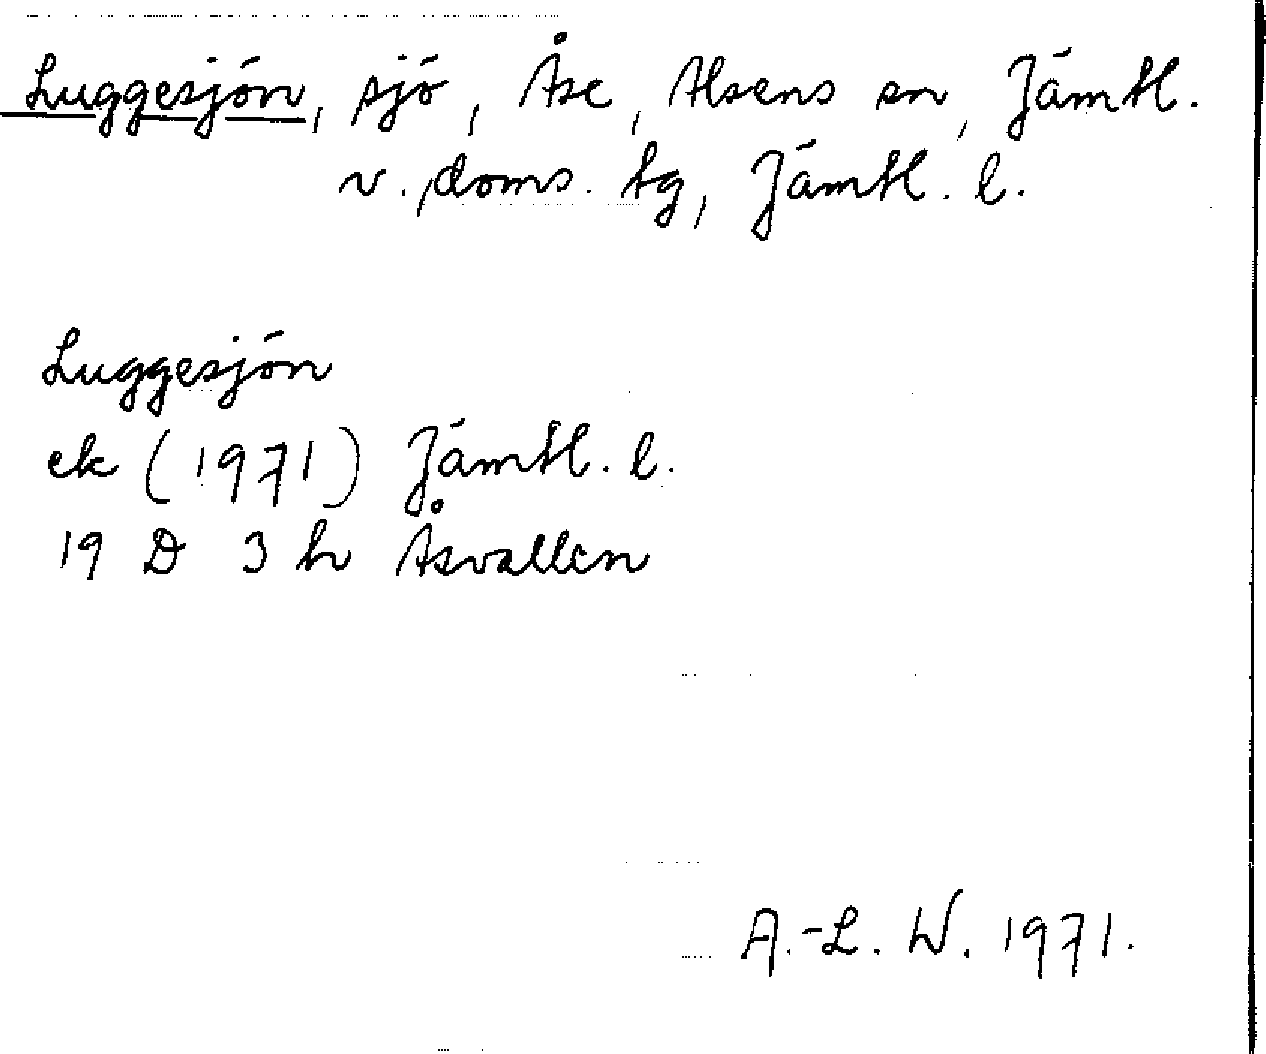 Luggesjön, sjö, Åse, Alsens sn, Jämtl.
v. doms. tg, Jämtl. l.
Luggesjön
ek (1971) Jämtl. l.
19 D 3 h Åsvallen
A.-L. W. 1971.